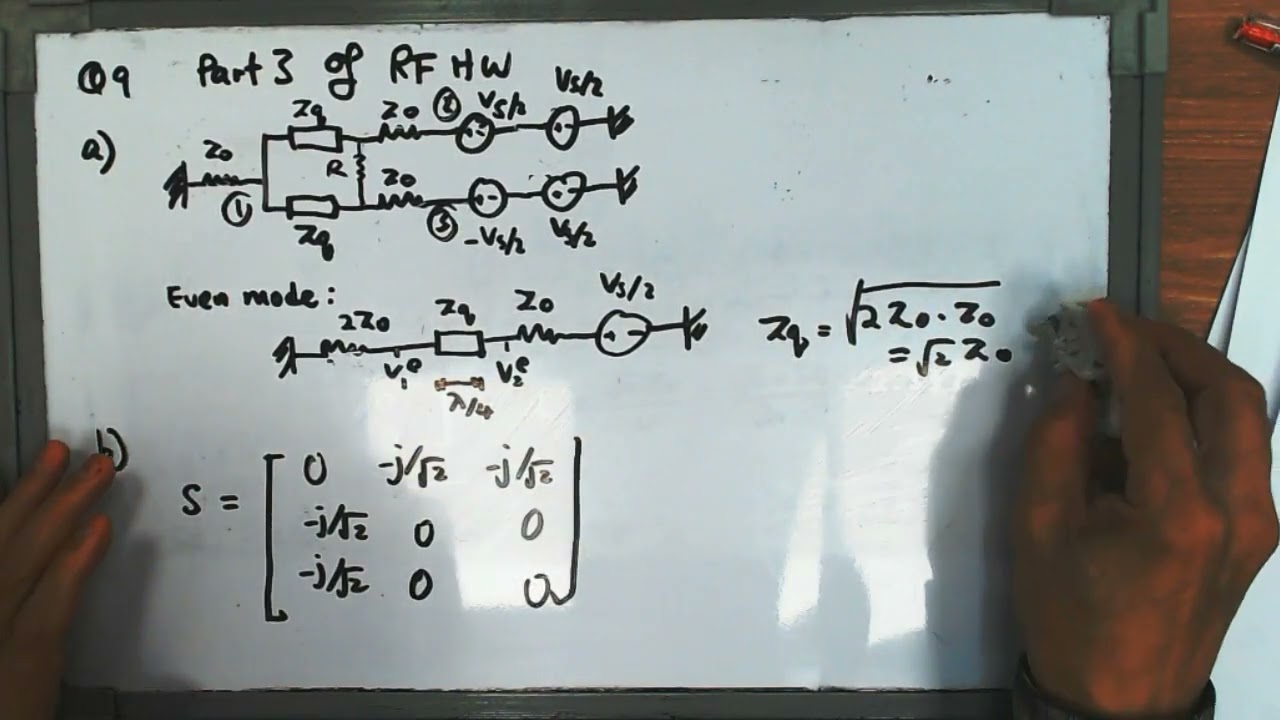 Q9 Part 3 of RF HW
a)
Zq Z0 ② Vs/2 Vs/2
+- +-
Z0 R
① Z0
Zq ③ +- +-
-Vs/2 Vs/2
Even mode:
2Z0 Zq Z0 Vs/2
+-
V₁ᵉ V₂ᵉ
λ/4
Zq = √2Z0·Z0
= √2 Z0
b)
S = [ 0 -j/√2 -j/√2
-j/√2 0 0
-j/√2 0 0 ]